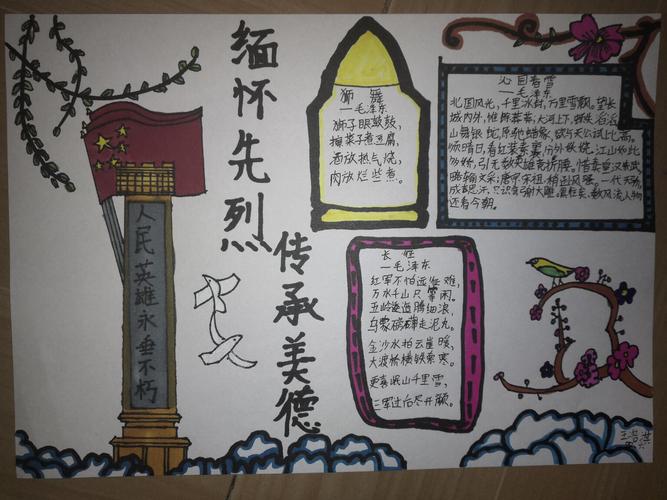 缅怀先烈
传承美德
人民英雄永垂不朽
狮舞
—毛泽东
狮子眼鼓鼓,
擦菜子煮豆腐,
酒放热气烧,
肉放烂些煮。
沁园春雪
—毛泽东
北国风光,千里冰封,万里雪飘。望长
城内外,惟馀莽莽;大河上下,顿失滔滔。
山舞银蛇,原驰蜡象,欲与天公试比高。
须晴日,看红装素裹,分外妖娆。江山如此
多娇,引无数英雄竞折腰。惜秦皇汉武,
略输文采;唐宗宋祖,稍逊风骚。一代天骄,
成吉思汗,只识弯弓射大雕。俱往矣,数风流人物
还看今朝。
长征
—毛泽东
红军不怕远征难,
万水千山只等闲。
五岭逶迤腾细浪,
乌蒙磅礴走泥丸。
金沙水拍云崖暖,
大渡桥横铁索寒。
更喜岷山千里雪,
三军过后尽开颜。
王浩淇